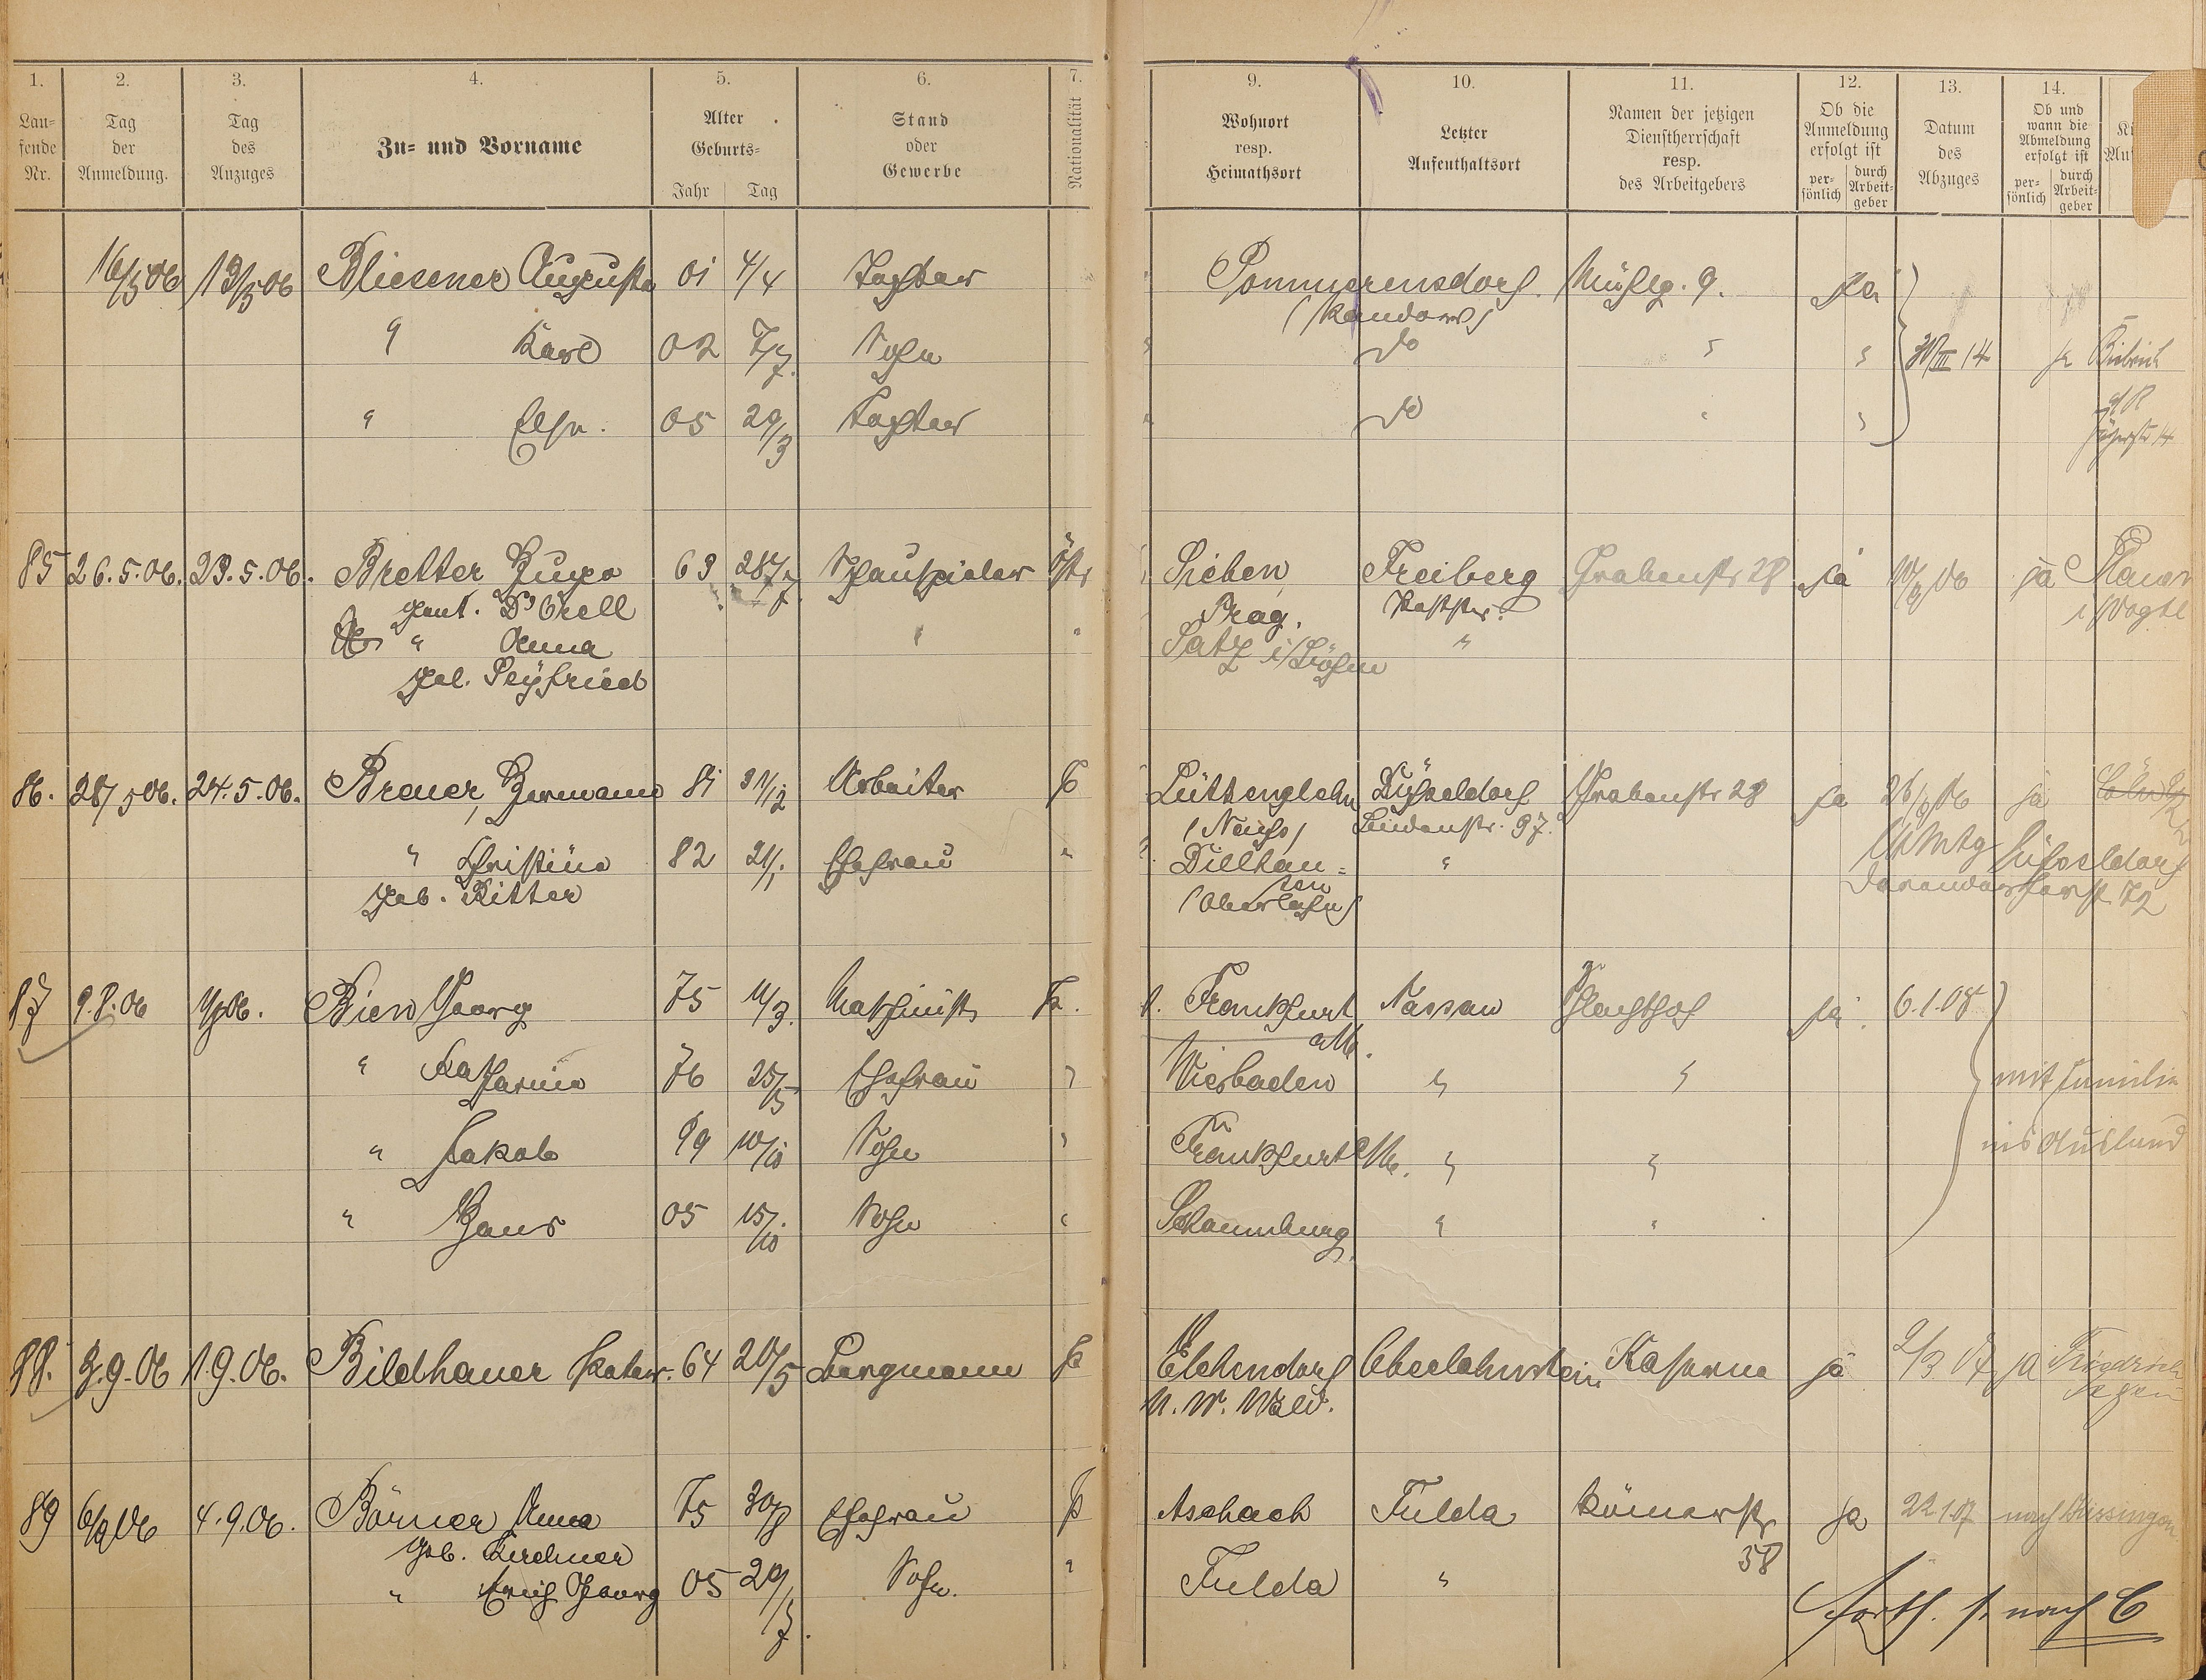 1. 2. 3. 4. 5. 6. 7. 9. 10. 11. 12. 13. 14.
Lau=
fende
Nr.
Tag
der
Anmeldung.
Tag
des
Anzuges
Zu- und Vorname
Alter
Geburts=
Jahr Tag
Stand
oder
Gewerbe
Nationalität
Wohnort
resp.
Heimathsort
Letzter
Aufenthaltsort
Namen der jetzigen
Dienstherrschaft
resp.
des Arbeitgebers
Ob die
Anmeldung
erfolgt ist
per=
sönlich
durch
Arbeit=
geber
Datum
des
Abzuges
Ob und
wann die
Abmeldung
erfolgt ist
per=
sönlich
durch
Arbeit=
geber
16/5 06 13/5 06 Bliesener Auguste 01 4/4 Tochter Pommerensdorf Mühlg. 9. Ja
(Randow)
" Karl 02 7/7. Sohn do " " 30/III 14 ja Biebrich
" Else. 05 29/3 Tochter do " " a/R
Jägerstr 14
85 26.5.06. 23.5.06. Bretter Hugo 63 28/7 Schauspieler Östr Lieben Freiberg Grabenstr 28 Ja 10/9 06 ja Plauen
gent. D'Orell Prag. i/Vogtl
" Anna " " Satz i/Böhm "
gel. Seyfried
86. 28/5 06. 24.5.06. Breuer, Hermann 81 31/12 Arbeiter P Lüttenglehn Düsseldorf Grabenstr 28 Ja 26/9 06 ja
(Neuss) Lindenstr. 97.
" Christine 82 21/1. Ehefrau " Dillhau= " Düsseldorf
geb. Ritter sen
(Oberlahn) 72
87 9.8.06 1/7 06. Bien Georg 75 11/3. Maschinist P. Frankfurt Nassau Schlachthof Ja. 6.1.08
a/M.
" Katharine 76 25/5 Ehefrau " Wiesbaden " " mit Familie
" Jakob 99 10/10 Sohn " Frankfurt a/M. " " ins Ausland
" Hans 05 15/10 Sohn " Schaumburg. " "
88. 3.9.06 1.9.06. Bildhauer 64 20/5 Bergmann P Elchendorf Oberlahnstein Kaserne ja 2/3 07 ja Friedrich
U. W. Wald. segen
89 6/9 06 4.9.06. Börner Anna 75 30/8 Ehefrau P Aschach Fulda Römerstr. Ja 22 1 07 nach Kissingen
geb. Kirchner 58
" Erich Georg 05 29/7. Sohn. " Fulda "
Forts. s. nach C